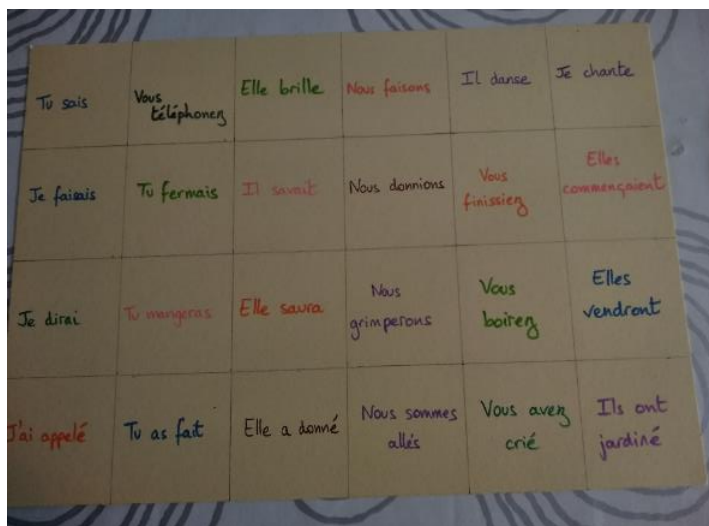 Tu sais
Vous
téléphonez
Elle brille
Nous faisons
Il danse
Je chante
Je faisais
Tu fermais
Il savait
Nous donnions
Vous
finissiez
Elles
commençaient
Je dirai
Tu mangeras
Elle saura
Nous
grimperons
Vous
boirez
Elles
vendront
J'ai appelé
Tu as fait
Elle a donné
Nous sommes
allés
Vous avez
crié
Ils ont
jardiné